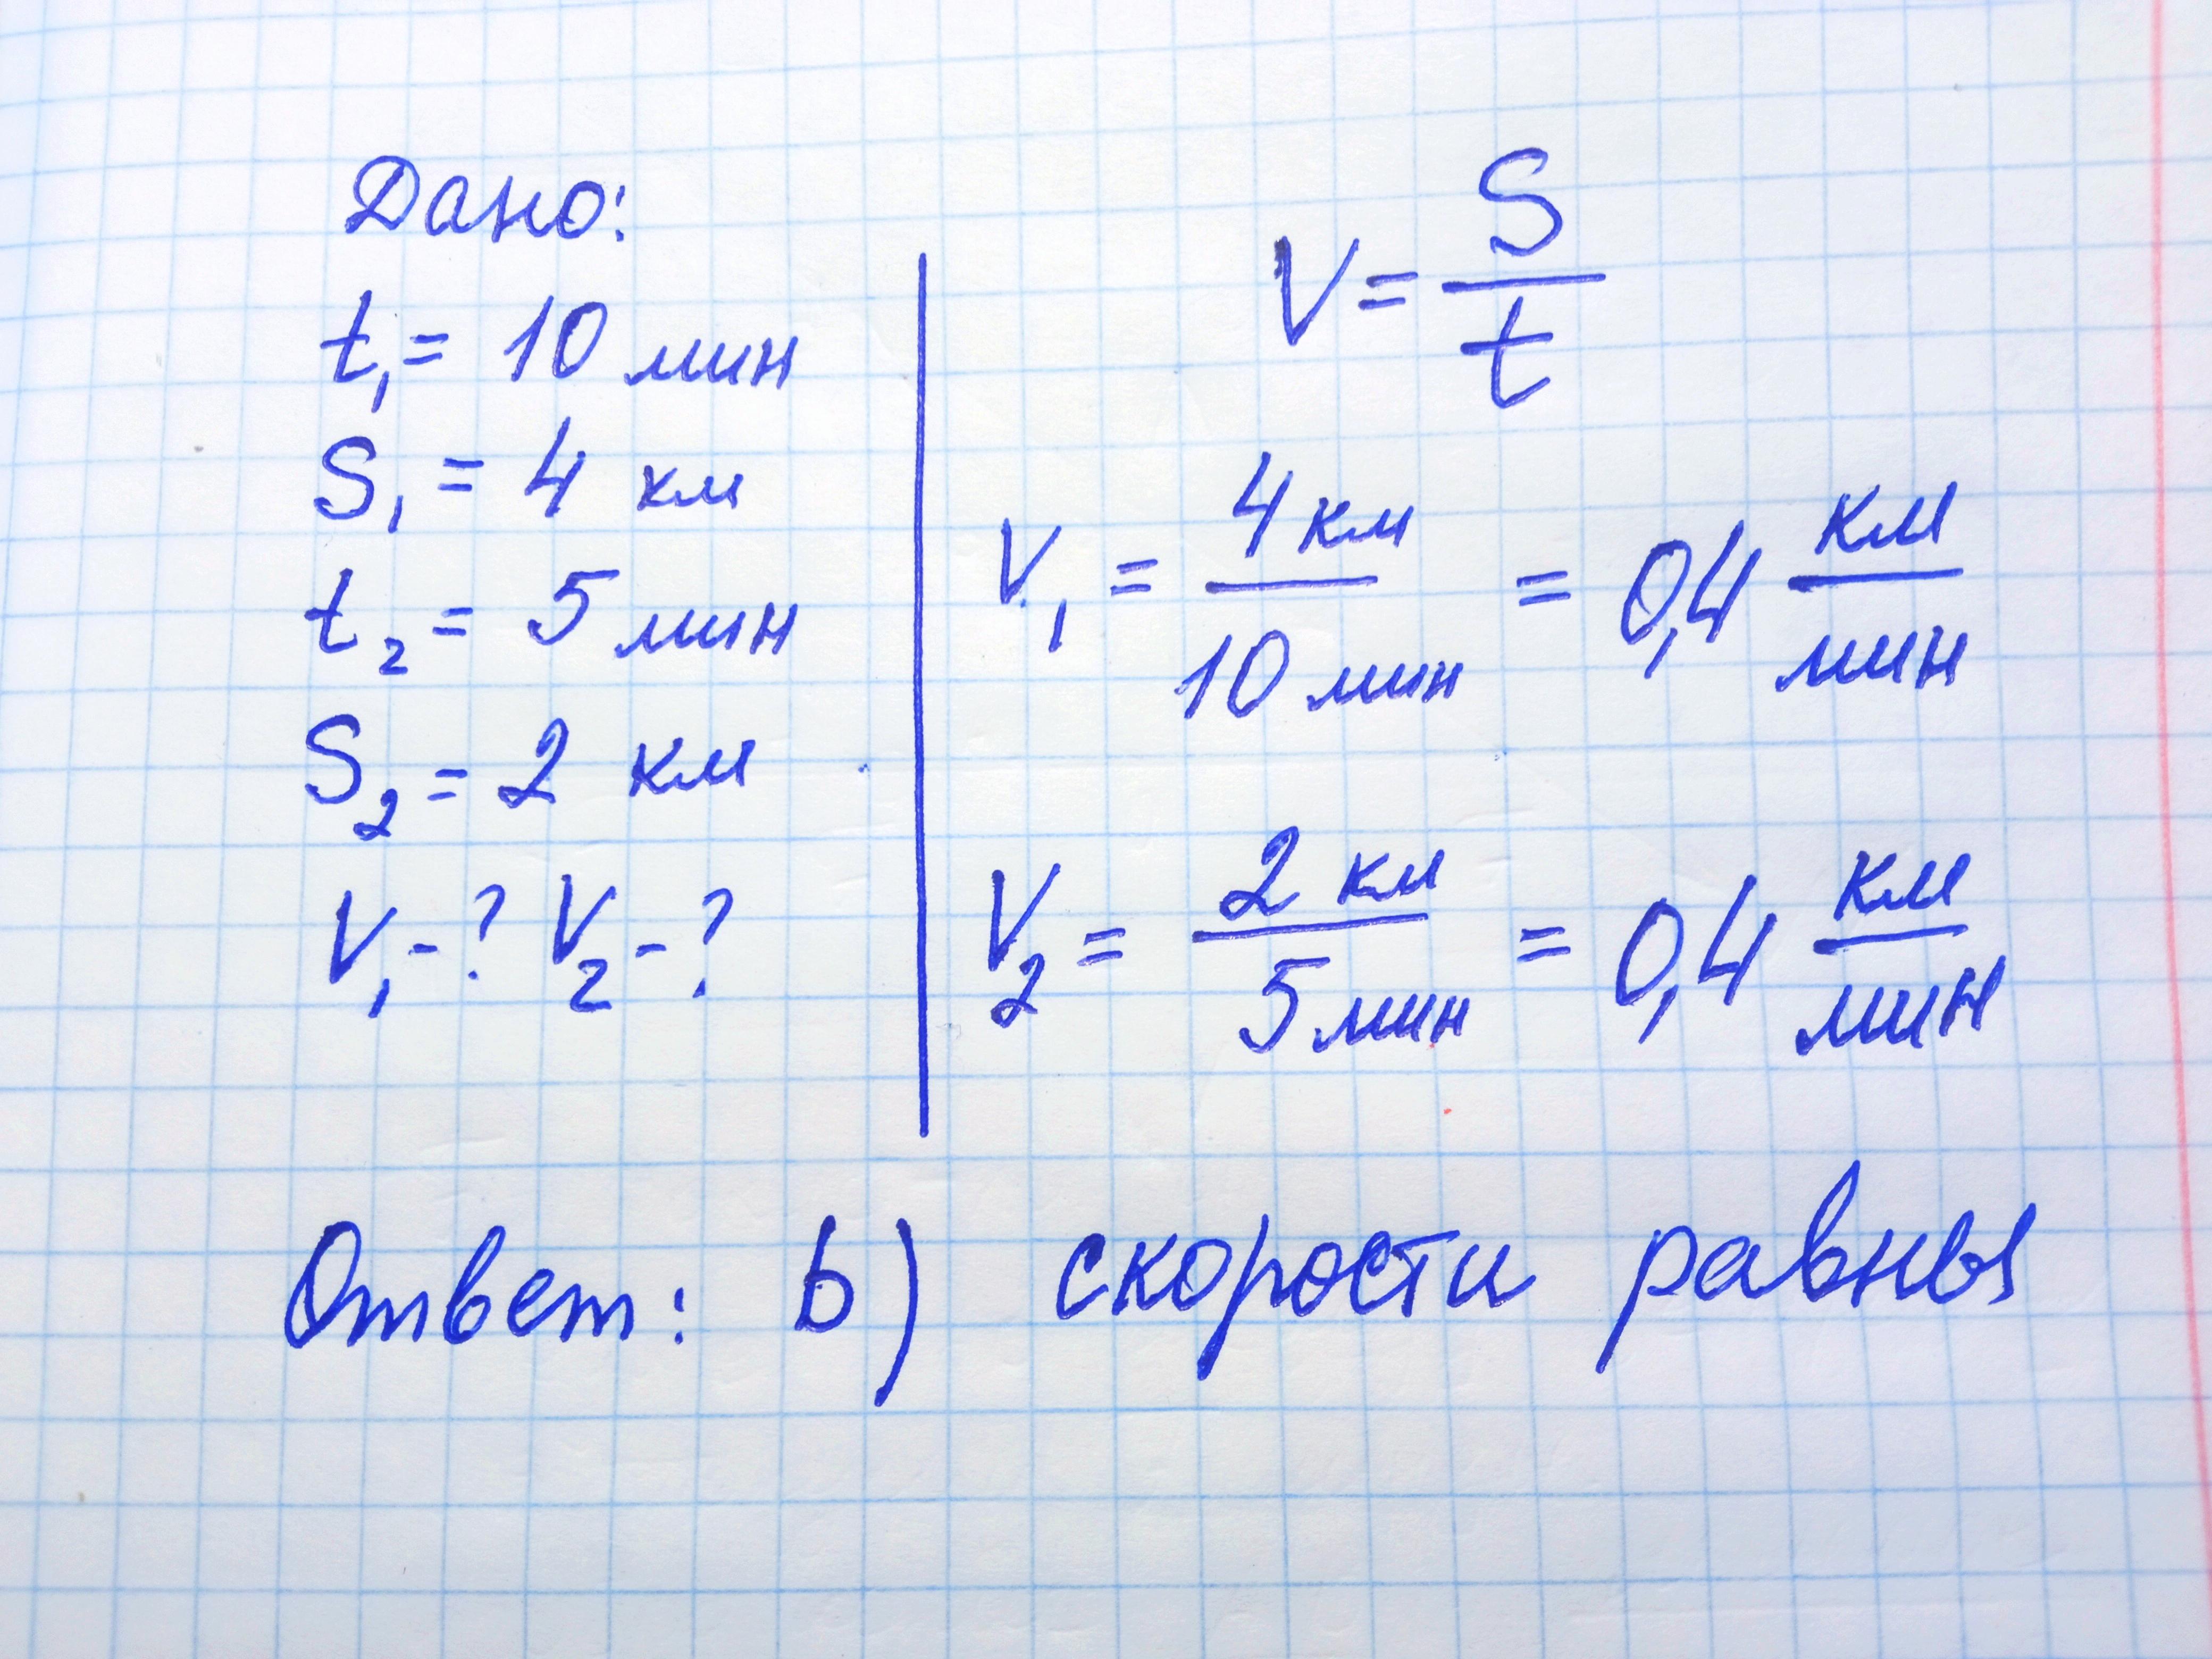 Дано:
t₁ = 10 мин
S₁ = 4 км
t₂ = 5 мин
S₂ = 2 км
V₁ - ? V₂ - ?
V = S/t
V₁ = 4 км/10 мин = 0,4 км/мин
V₂ = 2 км/5 мин = 0,4 км/мин
Ответ: b) скорости равны